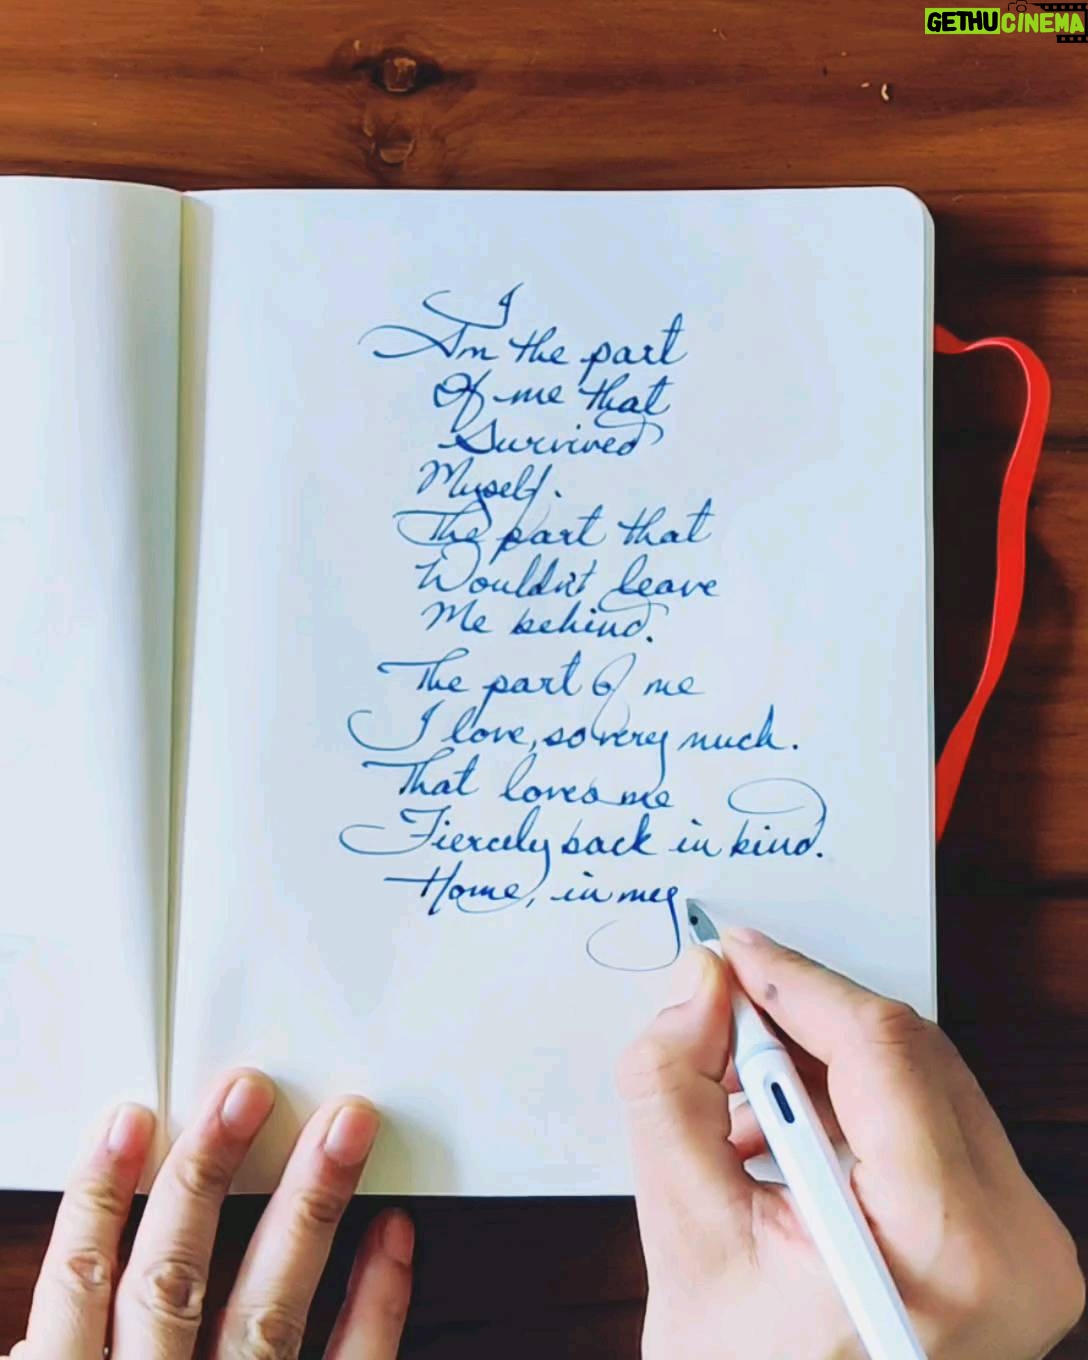 GETHUCINEMA
I
Am the part
Of me that
Survived
Myself.
The part that
Wouldn't leave
Me behind.
The part of me
I love, so very much.
That loves me
Fiercely back in kind.
Home, in my